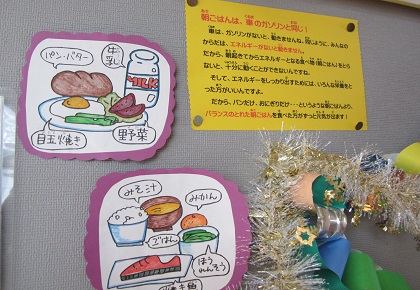 パン・バター
牛乳
MILK
目玉焼き
野菜
朝ごはんは、車のガソリンと同じ！
車は、ガソリンがないと、動きませんね。同じように、みんなの
からだは、エネルギーがないと動きません。
だから、朝起きてからエネルギーとなる食べ物（朝ごはん）をとら
ないと、十分に動くことができないんですね。
そして、エネルギーをしっかり出すためには、いろんな栄養をと
った方がいいんですよ。
だから、パンだけ、おにぎりだけ…というような朝ごはんより、
バランスのとれた朝ごはんを食べた方がずっと元気が出ます！
みそ汁
みかん
ごはん
ほう
れんそう
焼き魚